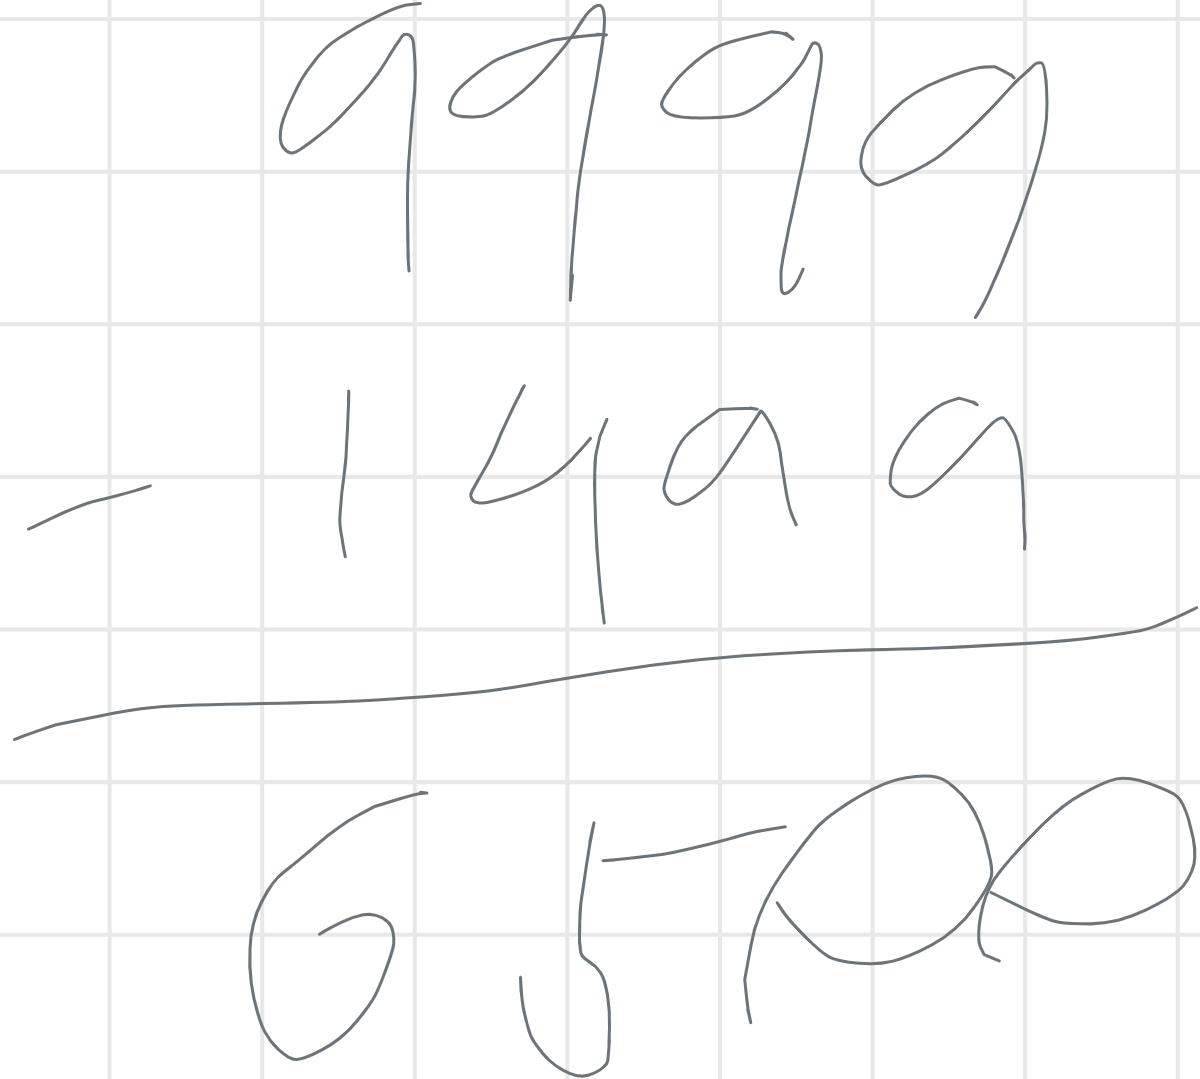 9999
- 1499
6500